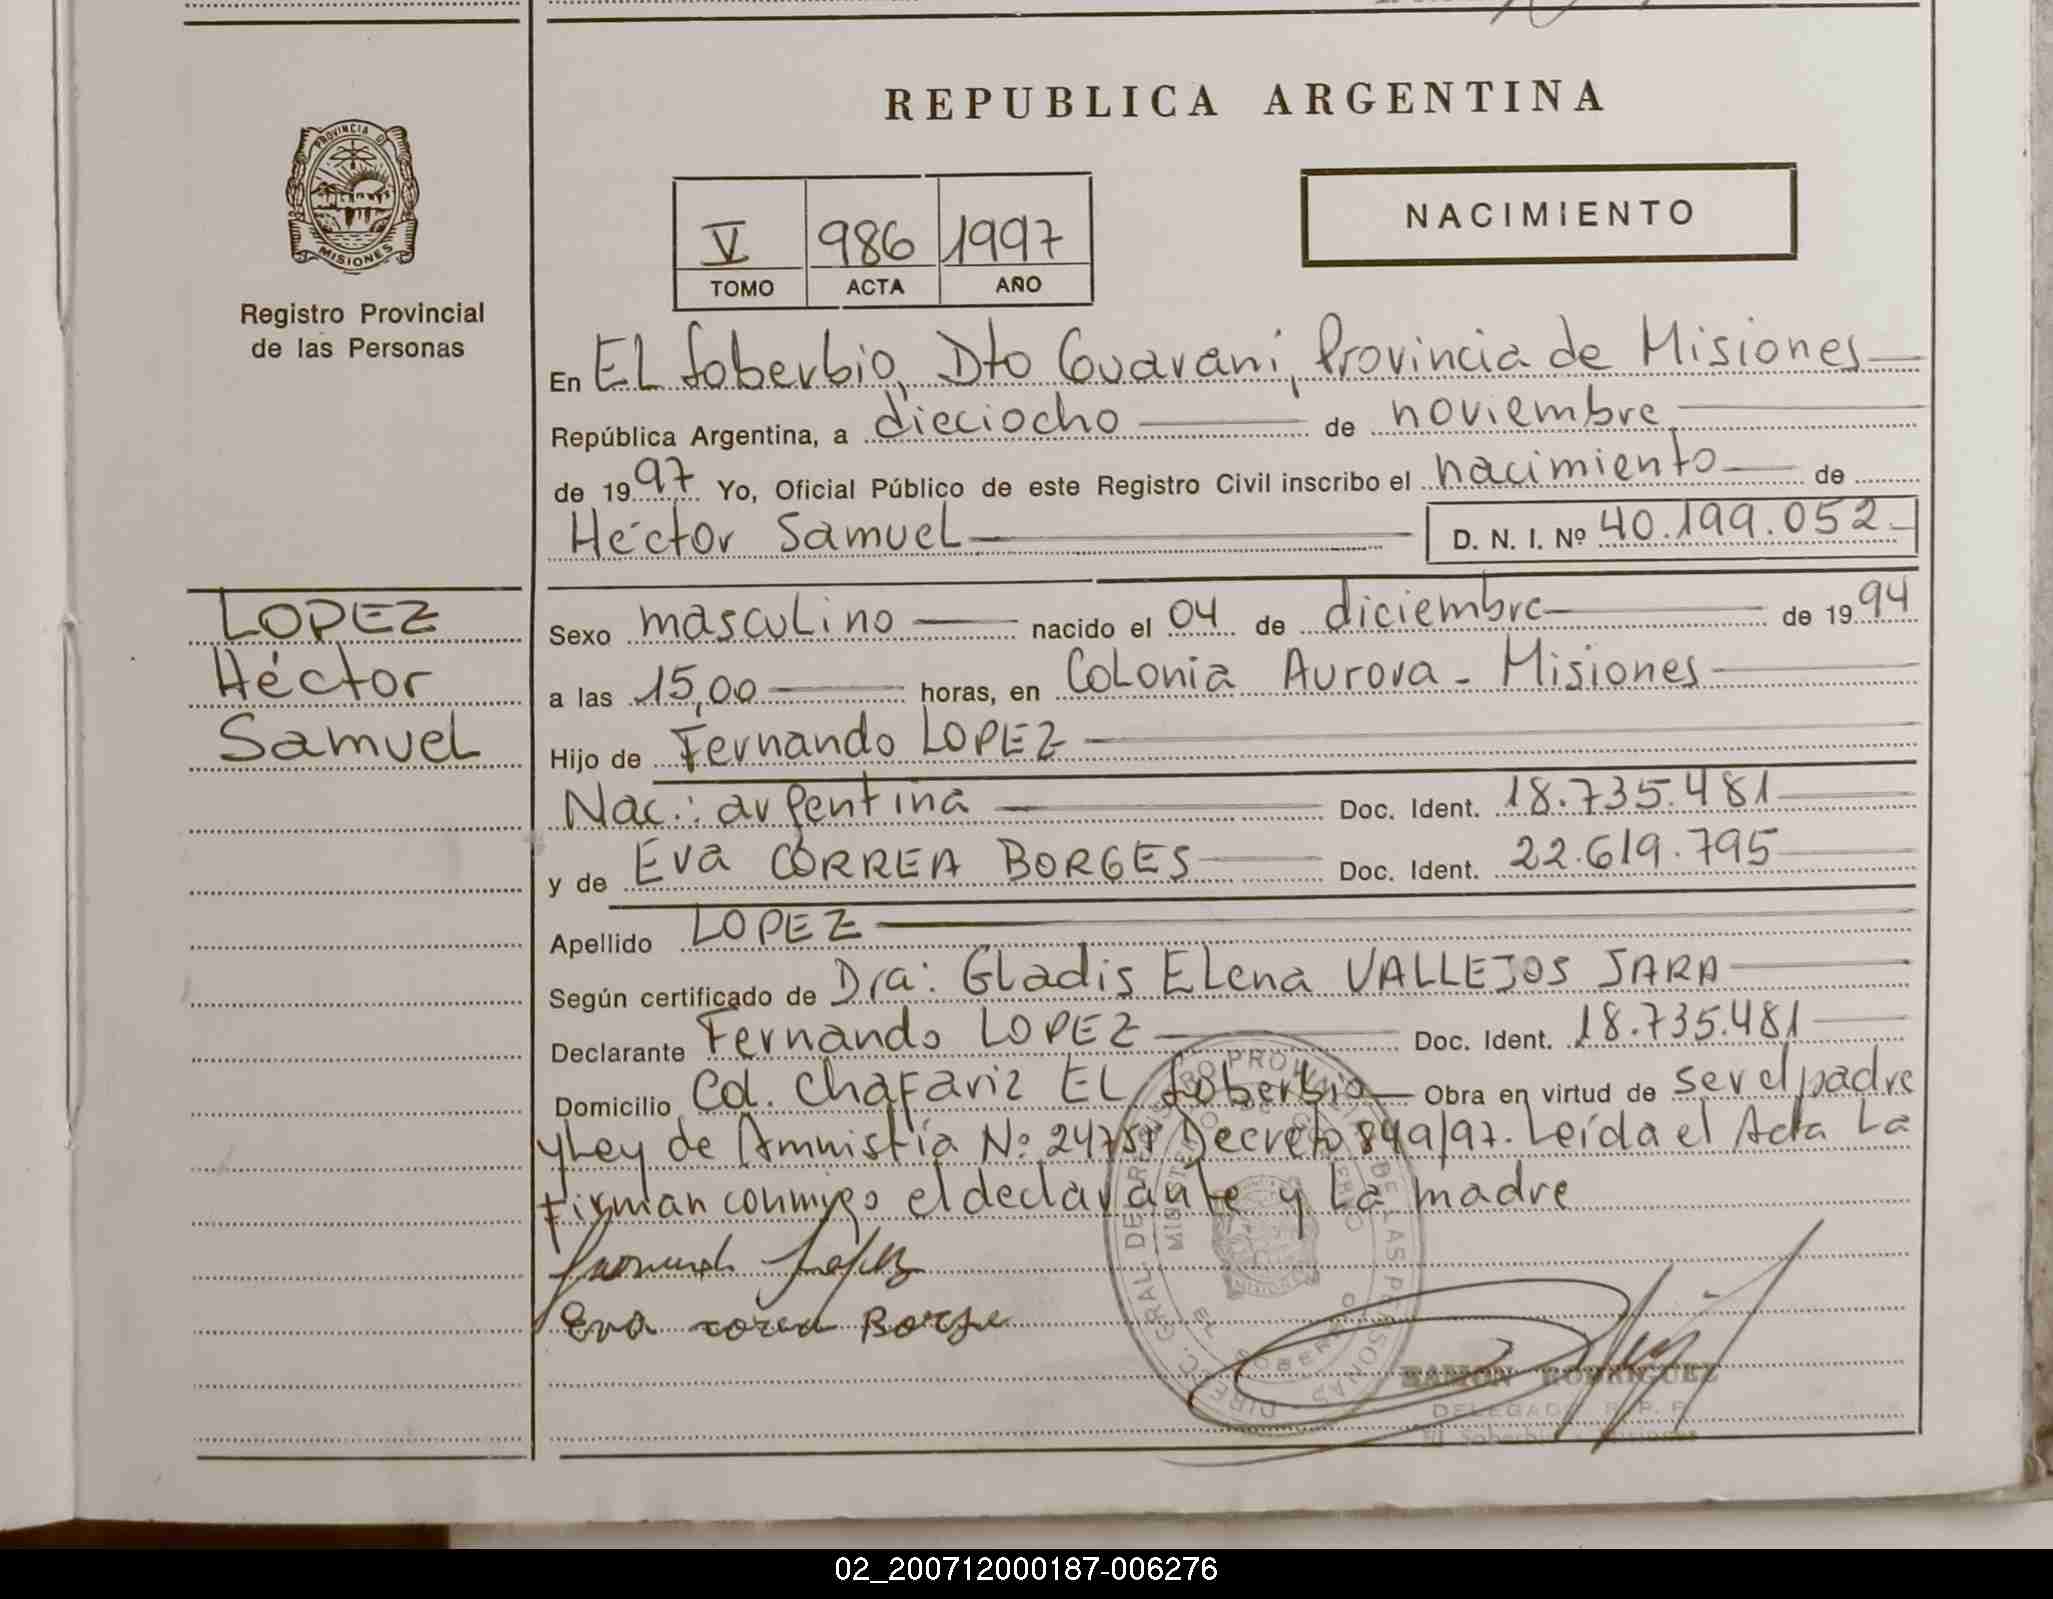 REPUBLICA ARGENTINA
PROVINCIA DE
MISIONES
Registro Provincial
de las Personas
V 986 1997
TOMO ACTA AÑO
NACIMIENTO
En EL Soberbio, Dto Guarani, Provincia de Misiones
República Argentina, a dieciocho de noviembre
de 1997 Yo, Oficial Público de este Registro Civil inscribo el nacimiento de
Héctor Samuel D. N. I. Nº 40.199.052
LOPEZ
Héctor
Samuel
Sexo masculino nacido el 04 de diciembre de 1994
a las 15,00 horas, en Colonia Aurora - Misiones
Hijo de Fernando LOPEZ
Nac.: argentina Doc. Ident. 18.735.481
y de Eva CORREA BORGES Doc. Ident. 22.619.795
Apellido LOPEZ
Según certificado de Dra: Gladis Elena VALLEJOS JARA
Declarante Fernando LOPEZ Doc. Ident. 18.735.481
Domicilio Col. Chafariz EL Soberbio Obra en virtud de ser el padre
y Ley de Amnistía Nº 24755 Decreto 849/97. Leída el Acta La
Firman conmigo el declarante y La madre
Fernando Lopez
Eva correa Borge
RAMON RODRIGUEZ
DELEGADO R. P. P.
El Soberbio - Misiones
02_200712000187-006276